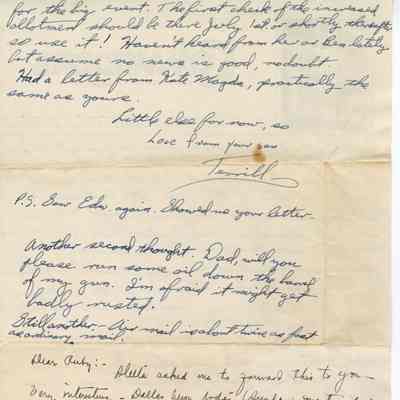 for the big event. The first check of the increased
allotment should be there July 1st or shortly thereafter
so use it! Haven't heard from her or Ben lately
but assume no news is good, no doubt
Had a letter from Kate Magda, practically the
same as yours.
Little else for now, so
Love from your son
Terrill
P.S. Saw Edw. again. Showed me your letter.
Another second thought. Dad, will you
please run some oil down the barrel
of my gun. I'm afraid it might get
badly rusted.
Still another - Air mail is about twice as fast
as ordinary mail.
Dear Ruby:- asked me to forward this to you
Very interesting - Dallas